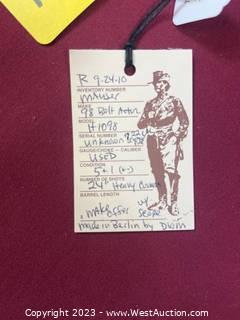 R 9-24-10
INVENTORY NUMBER
Mauser
MAKE
98 Bolt Action
MODEL
H1098
SERIAL NUMBER
unknown
GAUGE/CHOKE - CALIBER
USED
CONDITION
5+1 (+-)
NUMBER OF SHOTS
24" Heavy
BARREL LENGTH
make offer w/ scope
made in Berlin by DWM
Copyright © 2023 - www.WestAuction.com